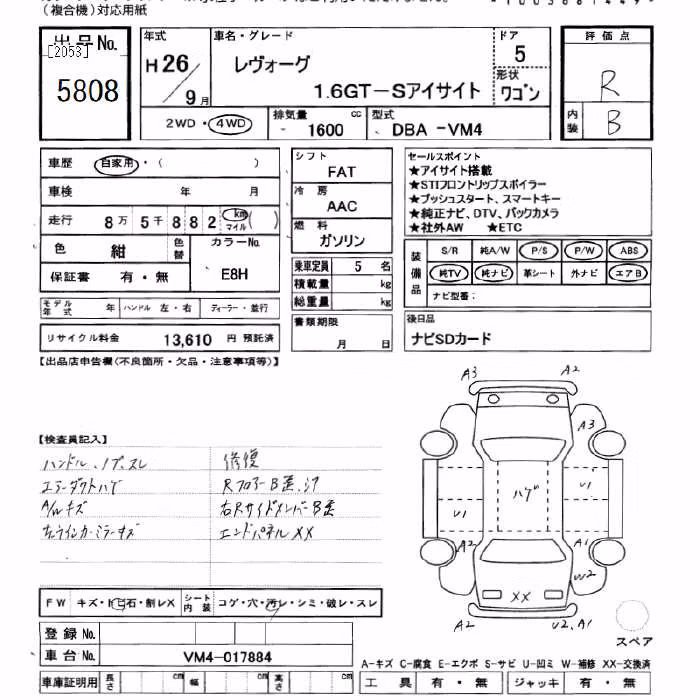 (複合機)対応用紙
出品No.
[2053]
5808
年式
H26/9月
車名・グレード
レヴォーグ
1.6GT-Sアイサイト
ドア
5
形状
ワゴン
評価点
R
内装
B
2WD・4WD
排気量
1600 cc
型式
DBA -VM4
車歴 自家用・( )
車検 年 月
走行 8万5千882 km マイル ( )
色 紺 色替
カラーNo. E8H
保証書 有・無
モデル年式 年 ハンドル 左・右 ディーラー・並行
リサイクル料金 13,610 円 預託済
シフト
FAT
冷房
AAC
燃料
ガソリン
乗車定員 5 名
積載量 kg
総重量 kg
書類期限
月 日
セールスポイント
★アイサイト搭載
★STIフロントリップスポイラー
★プッシュスタート、スマートキー
★純正ナビ、DTV、バックカメラ
★社外AW ★ETC
装備品
S/R 純A/W P/S P/W ABS
純TV 純ナビ 革シート 外ナビ エアB
ナビ型番:
後日品
ナビSDカード
【出品店申告欄(不良箇所・欠品・注意事項等)】
【検査員記入】
ハンドル、ノブ、スレ
エラーダクトハゲ
A/Wキズ
左ウィンカーミラーキズ
修復
RフロアーB歪、サ
右RサイドメンバーB歪
エンドパネルXX
A3 A2
A3
ハゲ
U1
U1
A2
A1
W2
XX
A2
U2、A1
スペア
FW キズ・トビ石・割レX シート内装 コゲ・穴・汚レ・シミ・破レ・スレ
登録No.
車台No. VM4-017884
車庫証明用 長さ cm 幅 cm 高さ cm
A-キズ C-腐食 E-エクボ S-サビ U-凹ミ W-補修 XX-交換済
工具 有・無 ジャッキ 有・無